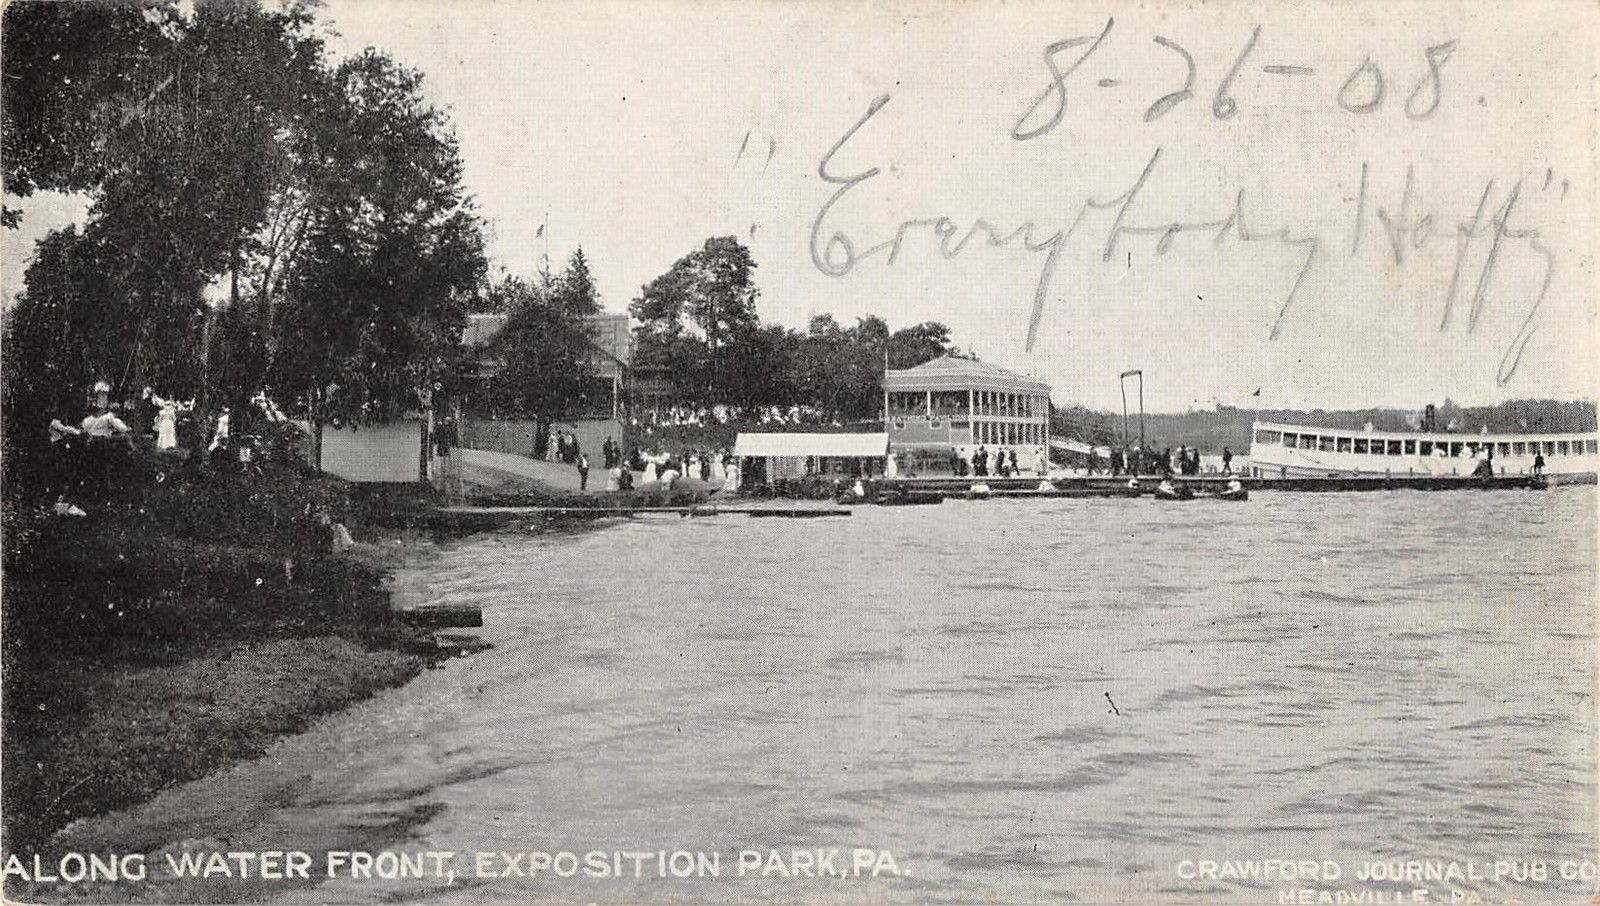 8-26-08.
"Everybody Happy"
PAVILION
ALONG WATER FRONT, EXPOSITION PARK, PA.
CRAWFORD JOURNAL PUB CO
MEADVILLE PA